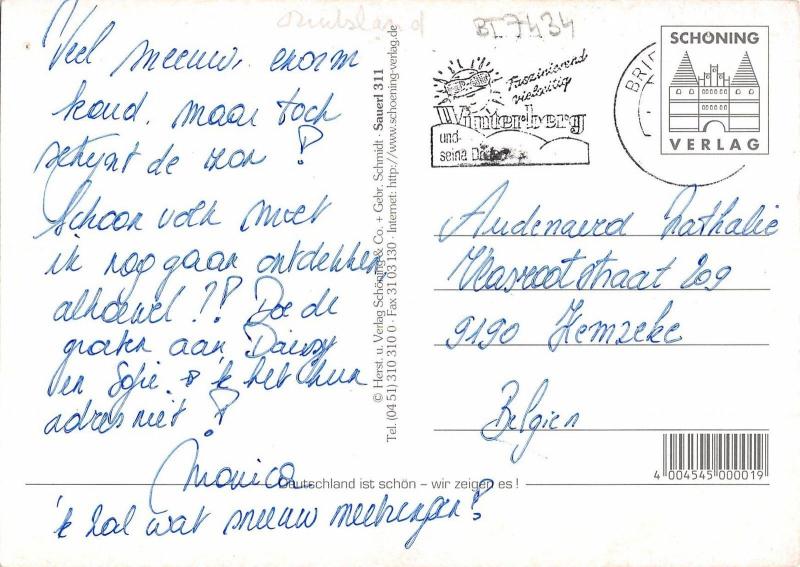 Duitsland
BL7434
Veel sneeuw, enorm
koud, maar toch
schijnt de zon!
Schoon volk moet
ik nog gaan ontdekken
alhoewel!? Doe de
groeten aan Daisy
en Sofie. 'k heb hun
adres niet!
Monica
'k zal wat sneeuw meebrengen!
© Herst. u. Verlag Schöning & Co. + Gebr. Schmidt · Sauerl 311
Tel. (04 51) 310 310 0 · Fax 31 03 130 · Internet: http://www.schoening-verlag.de
Deutschland ist schön – wir zeigen es !
Faszinierend
vielseitig
Winterberg
und
seine Dörfer
BRIE
SCHÖNING
VERLAG
Audenaerd Nathalie
209
9190
Belgien
4 004545 000019